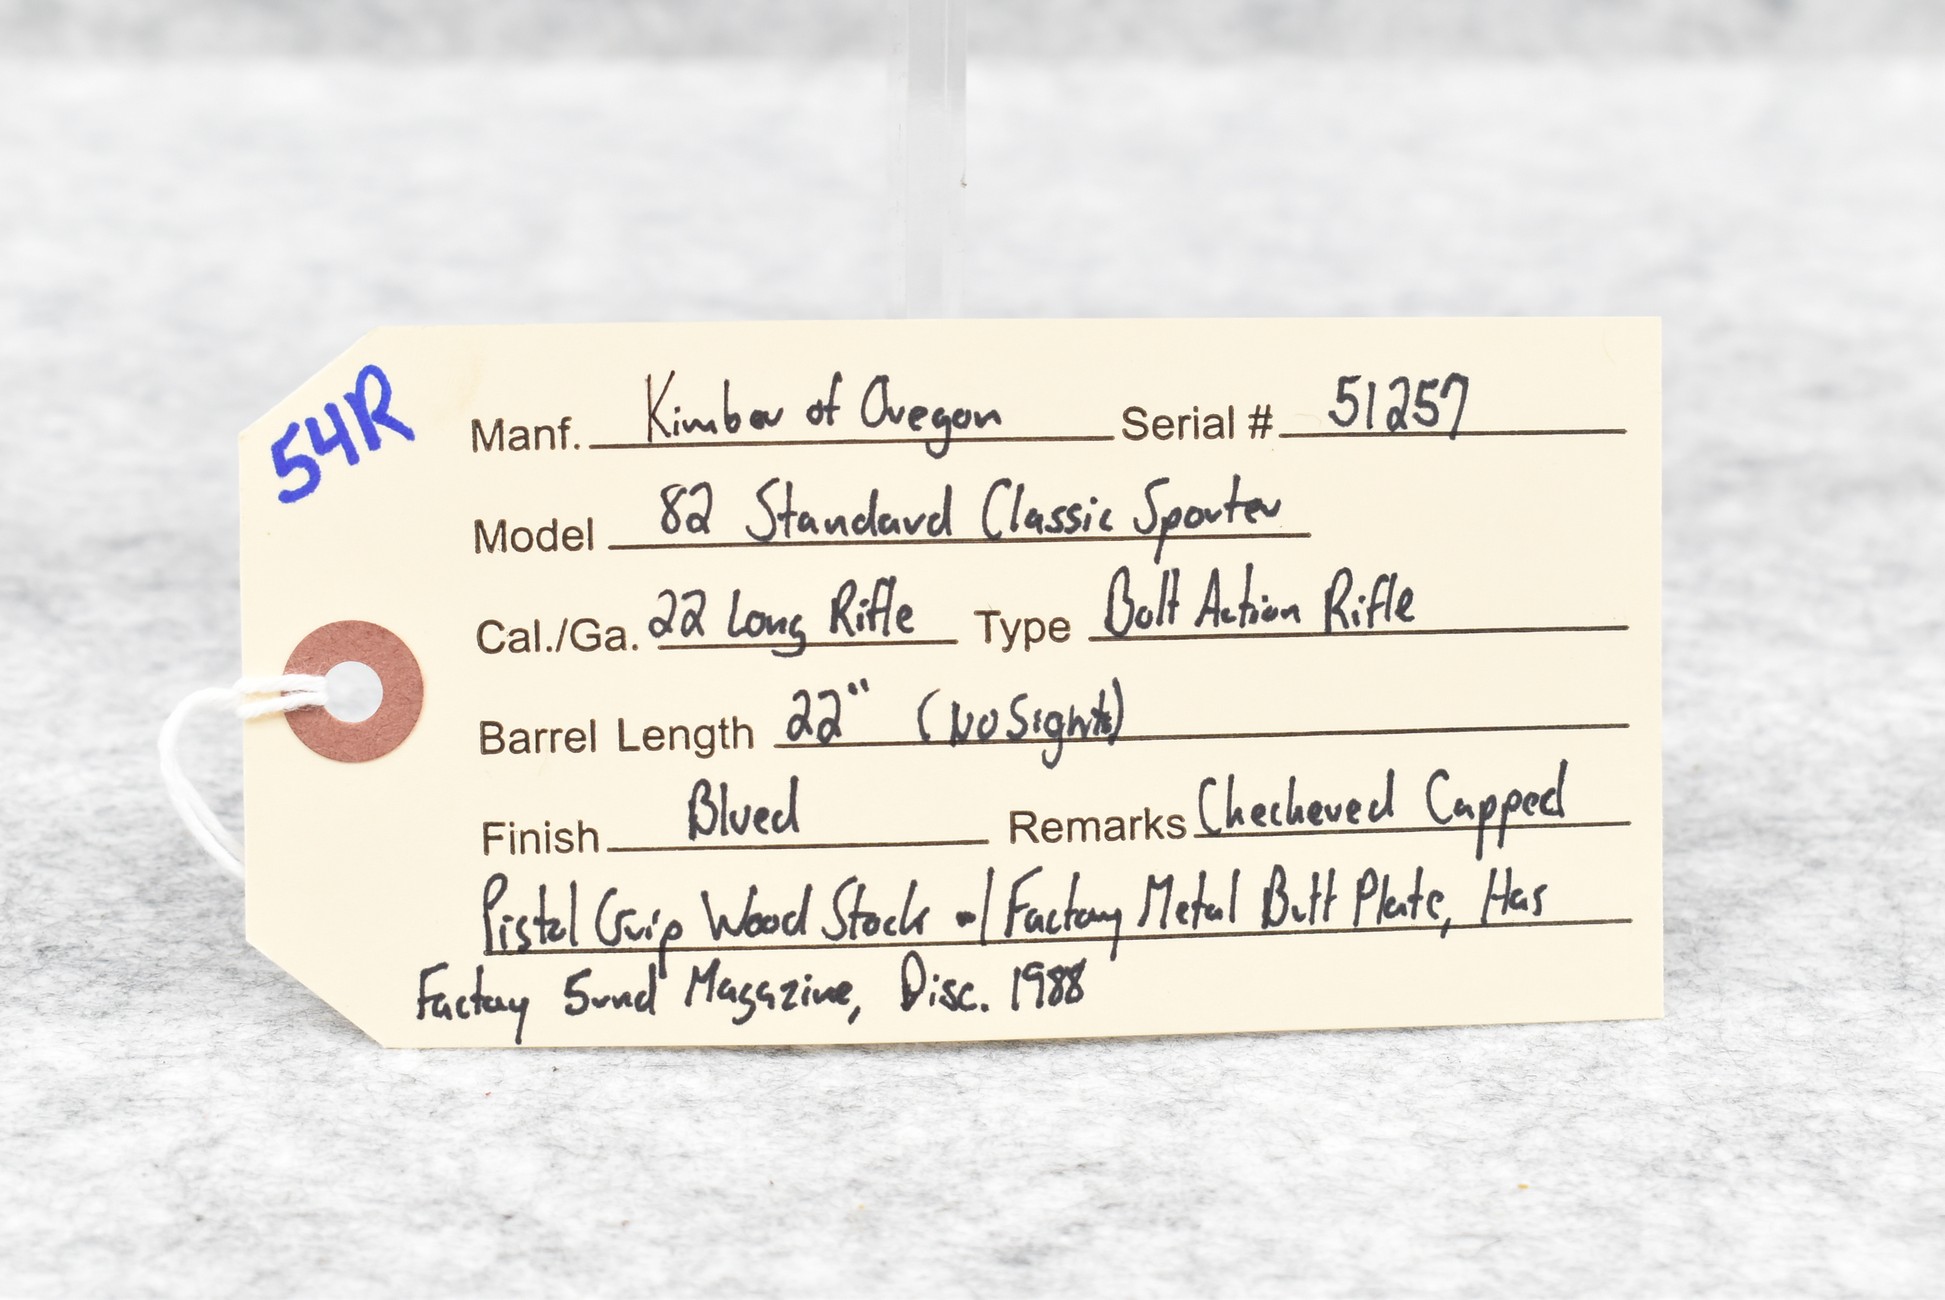 54R
Manf. Kimber of Oregon Serial # 51257
Model 82 Standard Classic Sporter
Cal./Ga. 22 Long Rifle Type Bolt Action Rifle
Barrel Length 22" (No Sights)
Finish Blued Remarks Checkered Capped
Pistol Grip Wood Stock w/ Factory Metal Butt Plate, Has
Factory 5rnd Magazine, Disc. 1988